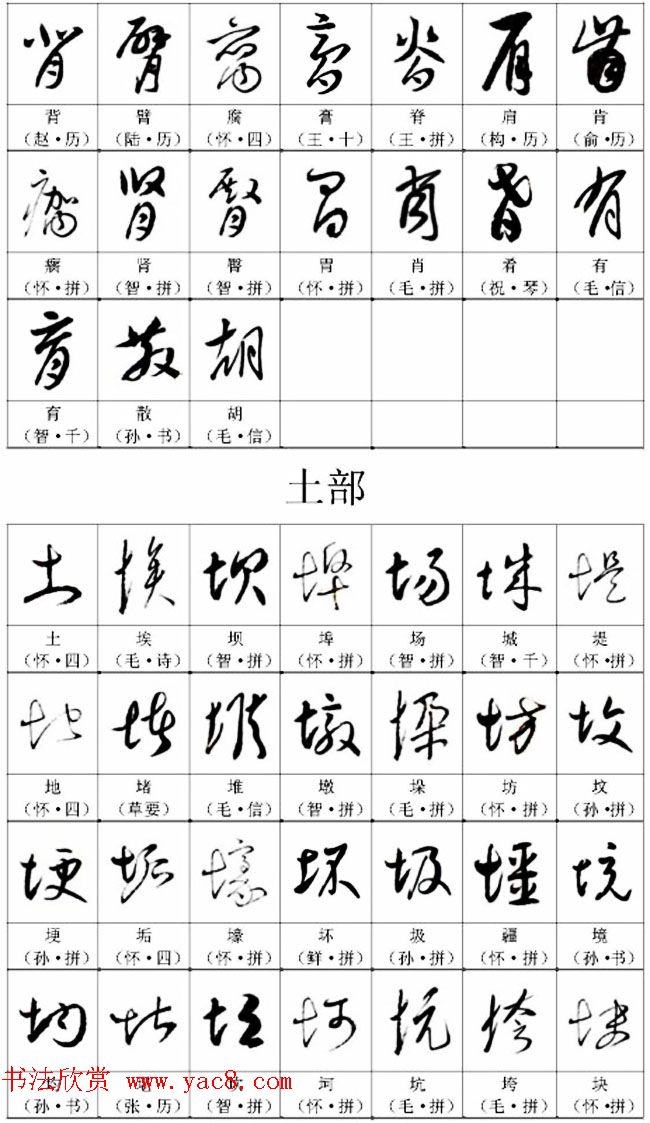 背 臂 腐 膏 脊 肩 肯
(赵·历) (陆·历) (怀·四) (王·十) (王·拼) (构·历) (俞·历)
瘸 肾 臀 胃 肖 肴 有
(怀·拼) (智·拼) (智·拼) (怀·拼) (毛·拼) (祝·琴) (毛·信)
育 散 胡
(智·千) (孙·书) (毛·信)
土部
土 埃 坝 埠 场 城 堤
(怀·四) (毛·诗) (智·拼) (怀·拼) (智·拼) (智·千) (怀·拼)
地 堵 堆 墩 垛 坊 坟
(怀·四) (草要) (毛·信) (智·拼) (毛·拼) (怀·拼) (孙·拼)
埂 垢 壕 坏 圾 疆 境
(孙·拼) (怀·四) (怀·拼) (鲜·拼) (孙·拼) (怀·拼) (孙·书)
坷 坑 垮 块
(孙·书) (张·历) (智·拼) (怀·拼) (毛·拼) (毛·拼) (怀·拼)
书法欣赏 www.yac8.com